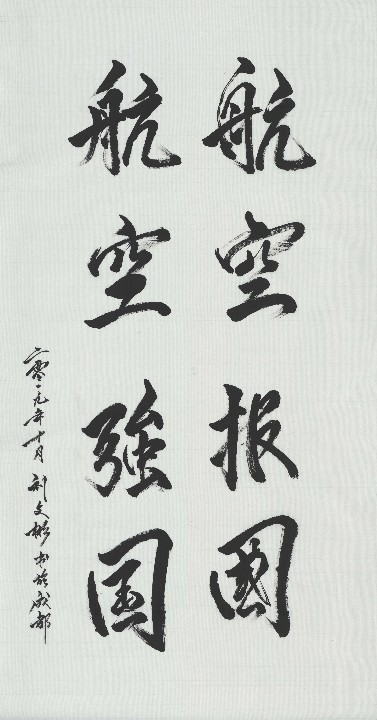 航空报國
航空強国
二零一九年十月刘文彬书於成都